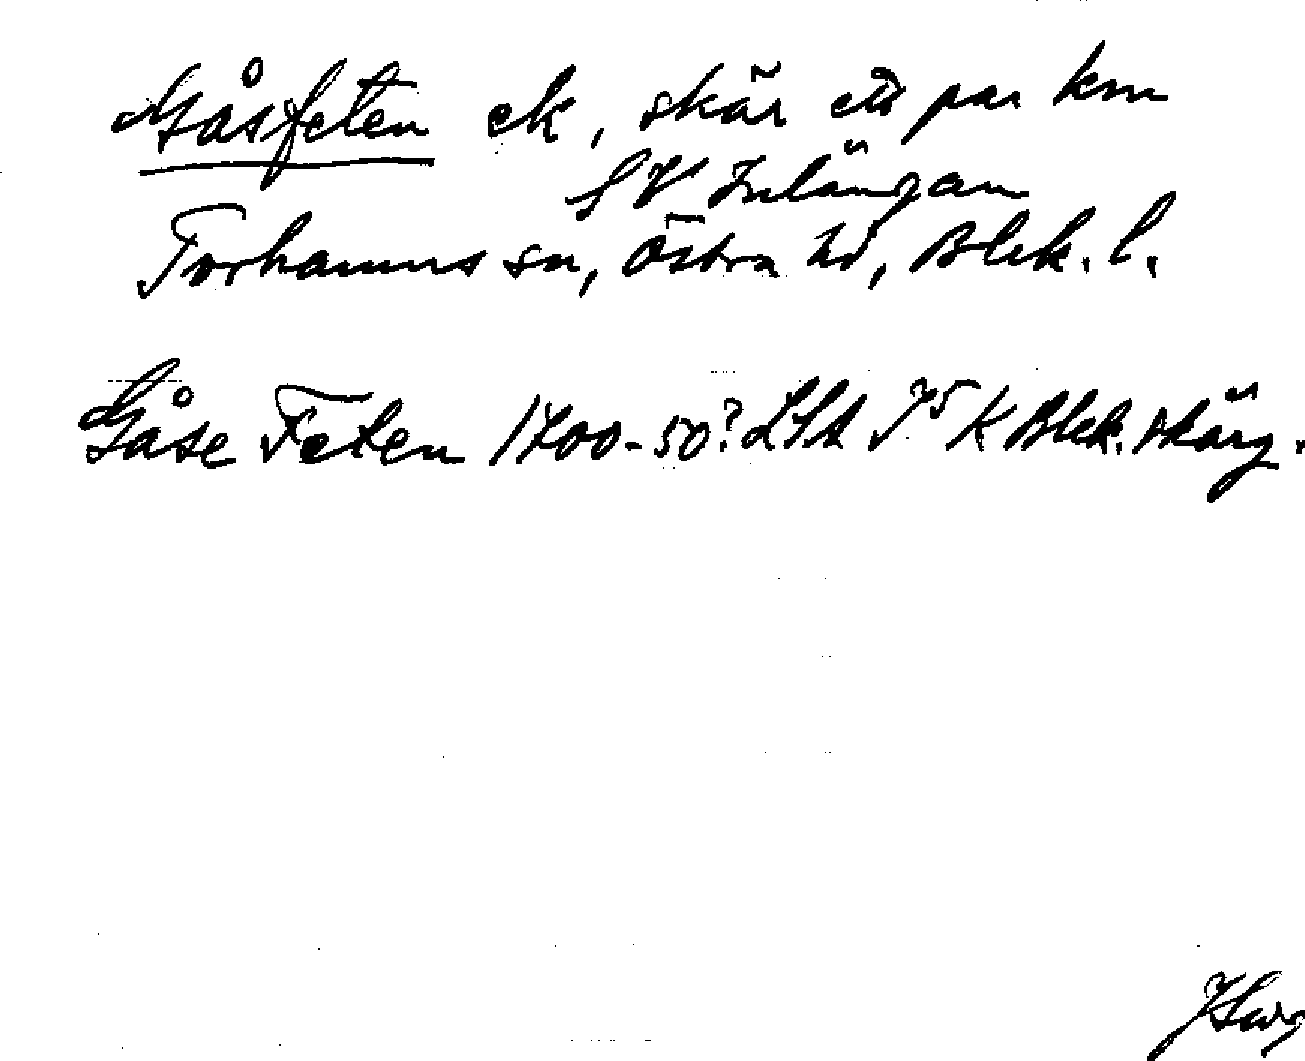 Gåsfeten ek, skär ett par km
SV Inlängan
Torhamns sn, Östra hd, Blek. l.
Gåse Feten 1700-50? LSA K Blek. skärg.